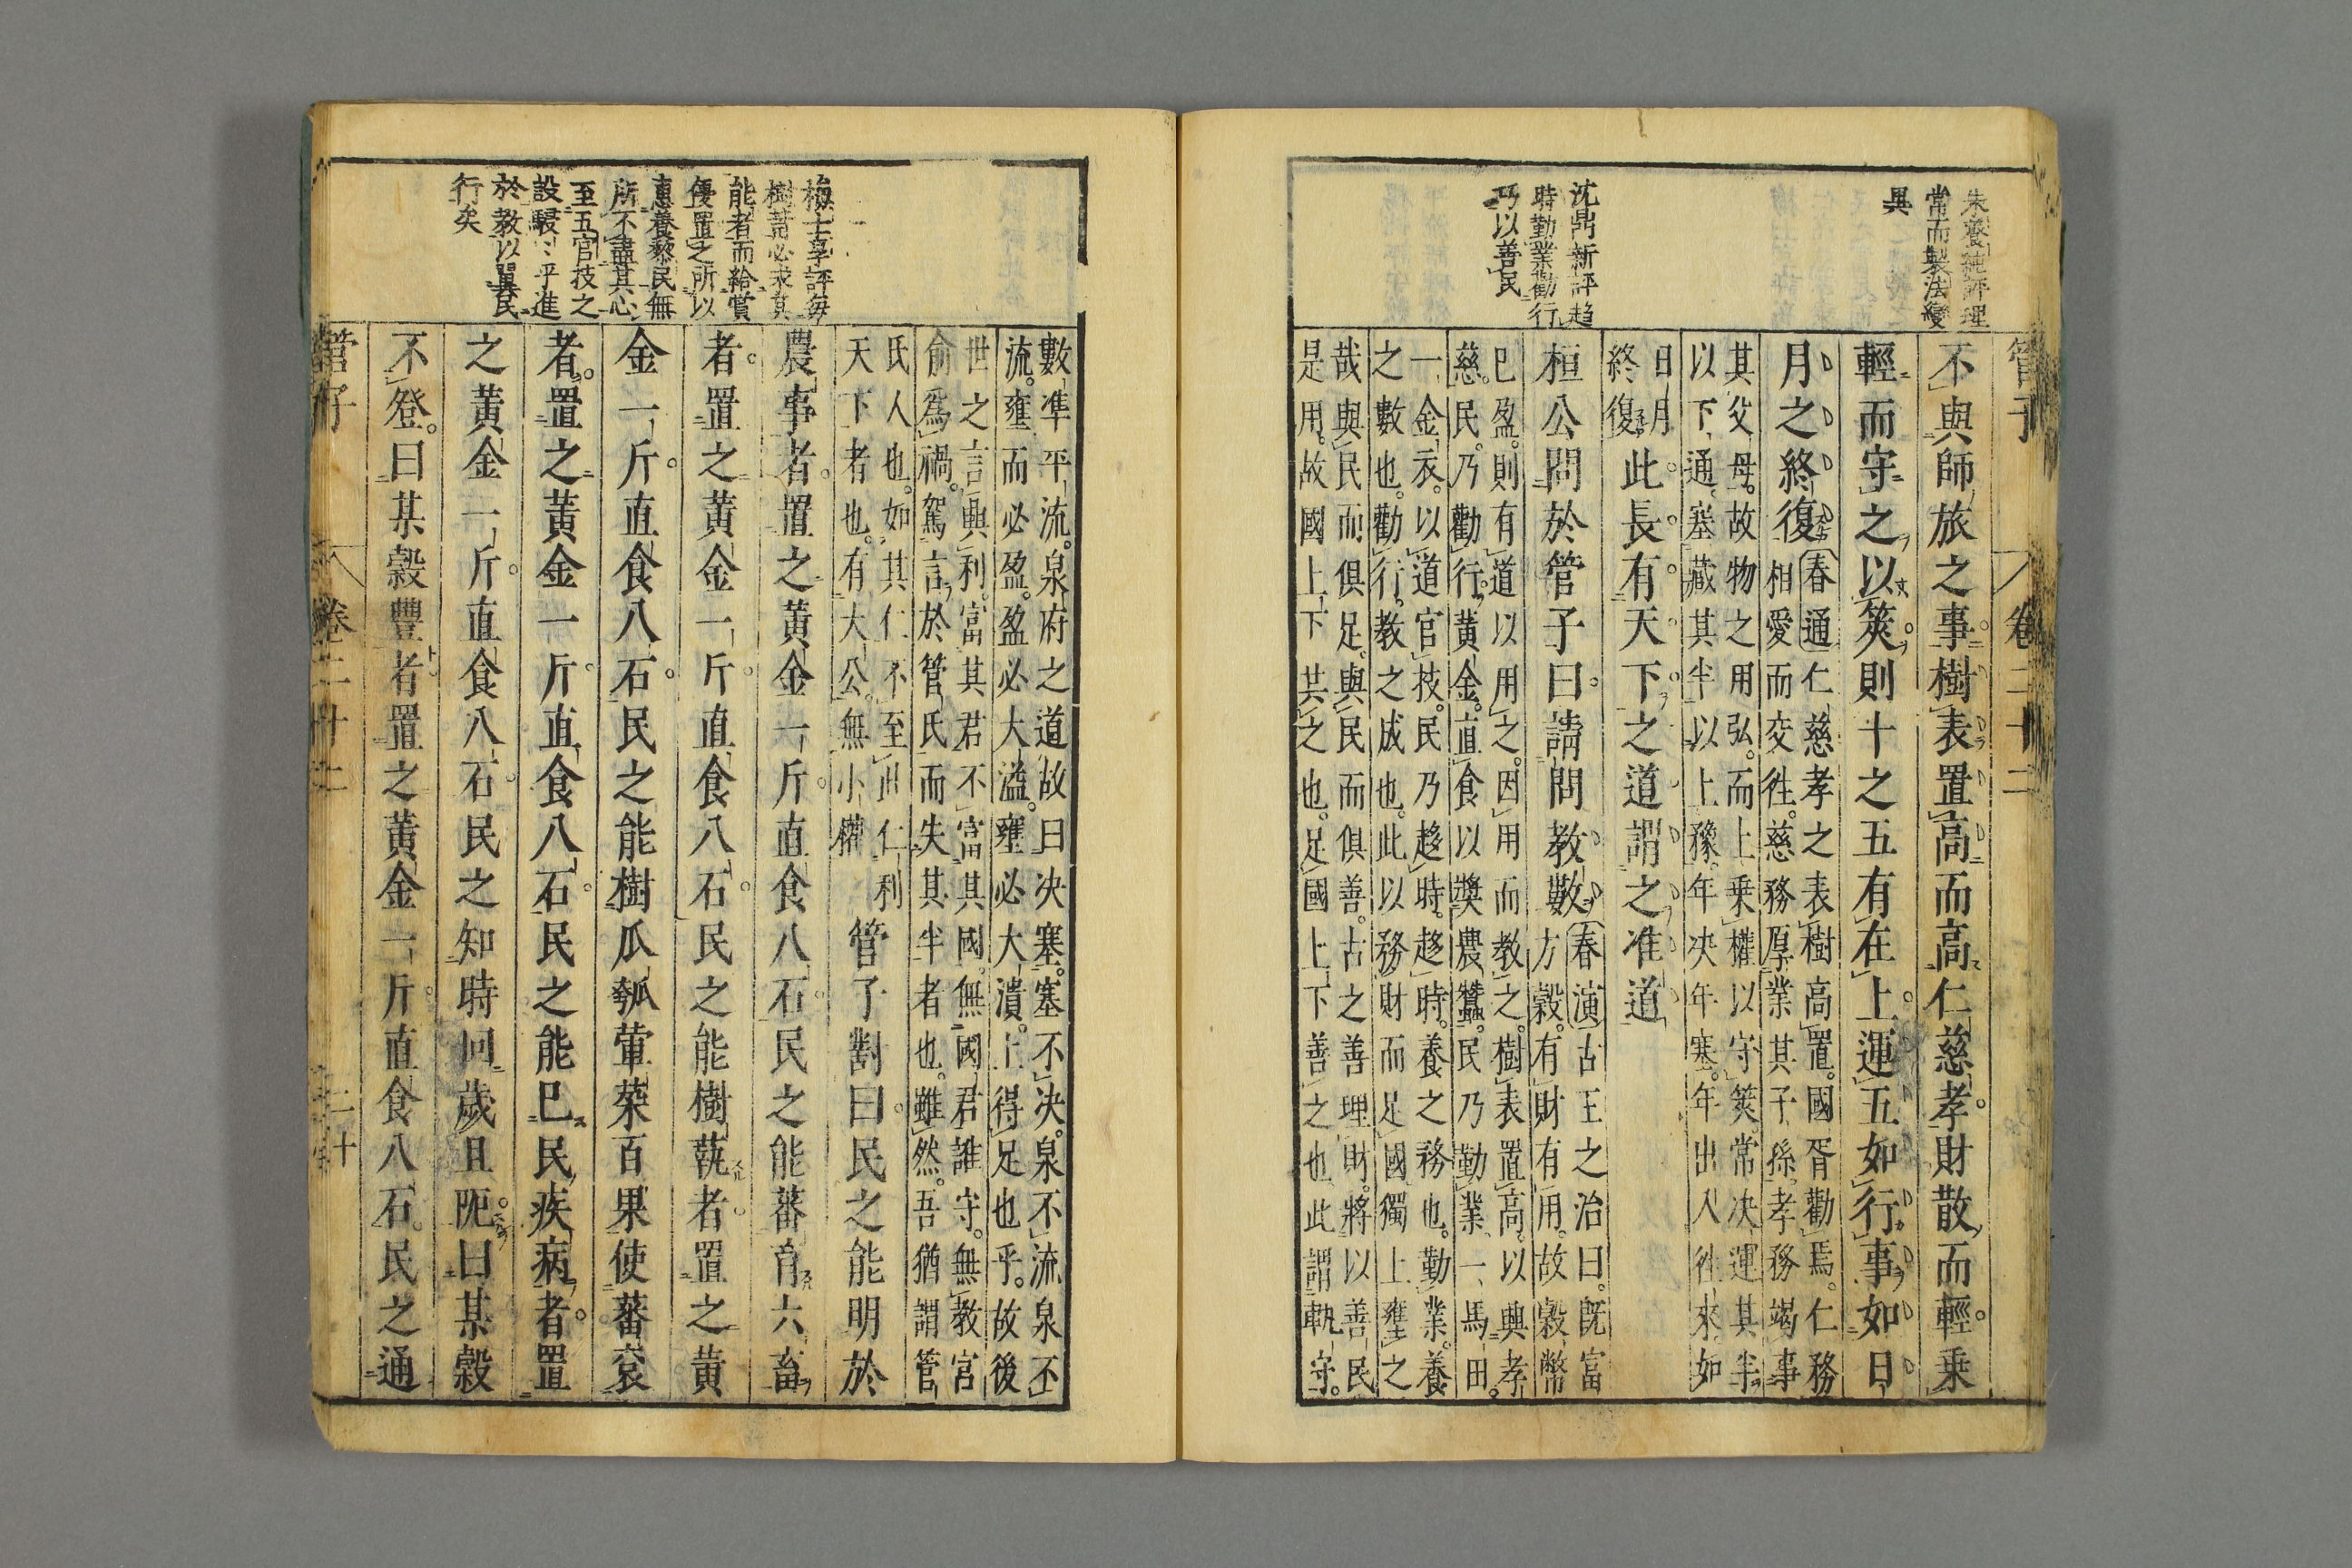 管子
卷二十二
朱養純評理
常而製法變
異
沈鼎新評趋
時勤業勸行
乃以善民
不與師旅之事樹表置高而高仁慈孝財散而輕乗
輕而守之以筴則十之五有在上運五如行事如日
月之終復
春通仁慈孝之表樹高置國胥勸焉仁務
相愛而交徃慈務厚業其子孫孝務竭事
其父母故物之用弘而上乗權以守筴常决運其半
以下通塞藏其半以上豫年决年塞年出入徃來如
日月
終復
此長有天下之道謂之准道
桓公問於管子曰請問教數
春演古王之治曰既富
方穀有財有用故穀幣
已盈則有道以用之因用而教之樹表置高以興孝
慈民乃勸行黄金直食以奬農蠶民乃勤業一馬田
一金衣以道官技民乃趍時趍時養之務也勤業養
之數也勸行教之成也此以務財而足國獨上壅之
哉與民而俱足與民而俱善古之善理財將以善民
是用故國上下共之也足國上下善之也此謂軌守
數凖平流泉府之道故曰决塞塞不决泉不流泉不
流壅而必盈盈必大溢壅必大潰上得足也乎故後
世之言興利富其君不富其國無國君誰守無教官
俞為禍駕言於管氏而失其半者也雖然吾猶謂管
氏人也如其仁不至此仁利
天下者也有大公無小權
管子對曰民之能明於
農事者置之黄金一斤直食八石民之能蕃育六畜
者置之黄金一斤直食八石民之能樹蓺者置之黄
金一斤直食八石民之能樹瓜瓠葷菜百果使蕃衮
者置之黄金一斤直食八石民之能已民疾病者置
之黄金一斤直食八石民之知時曰歲且阨曰某穀
不登曰某穀豐者置之黄金一斤直食八石民之通
梅士享評每
樹蓺必求其
能者而給賞
優置之所以
惠養黎民無
所不盡其心
至五官技之
設駸〻乎進
於教以異民
行矣
管子
卷二十二
二十